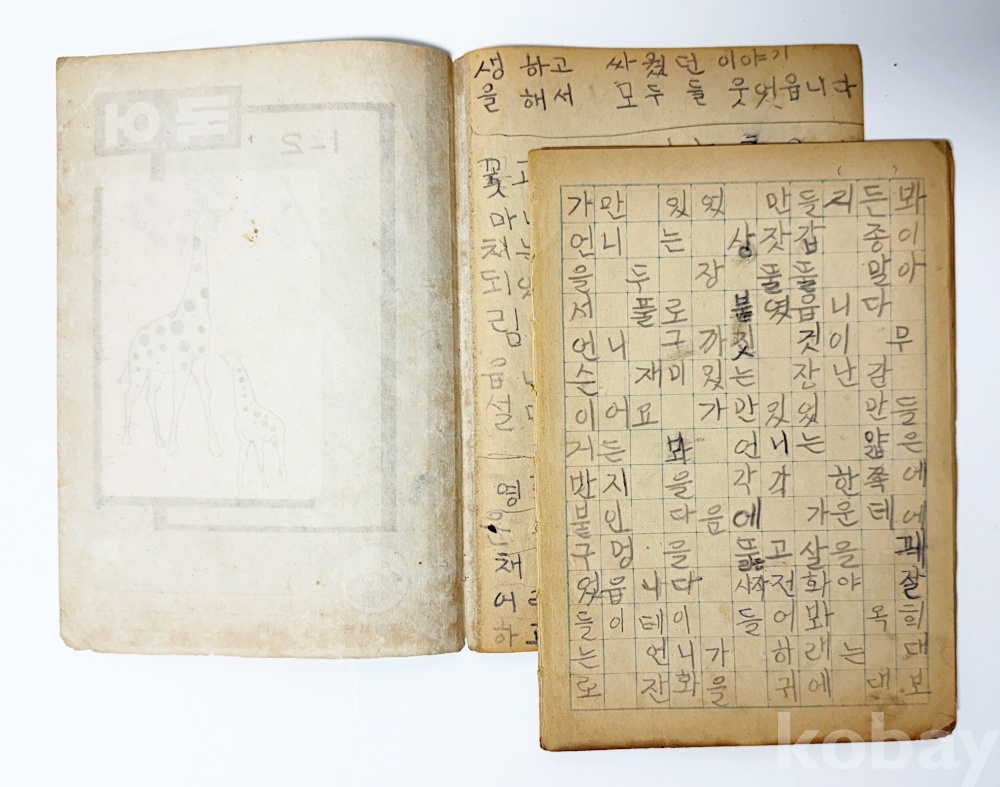 국어
1-2
생 하고 싸웠던 이야기
을 해서 모두 들 웃었읍니다
꽃
마
채
되
림
읍
설
영
채
어
하고
가만 있었 만들지든 봐
언니 는 상 잣갑 종이
을 두 장 풀풀 말아
서 풀로 붙였읍니다
언니 구까짓 것이 무
슨 재미있는 장난감
이어요 가만있었 만들
거든 봐 언니는 얇은
반지 을 각각 한쪽에
붙인 다음에 가운테에
구멍 을 뚫고 살을 꿰
었읍니다 시작전화야 잘
들이테이 들어봐 옥희
는 언니가 하래는 대
로 잔화을 귀에 대보
kobay